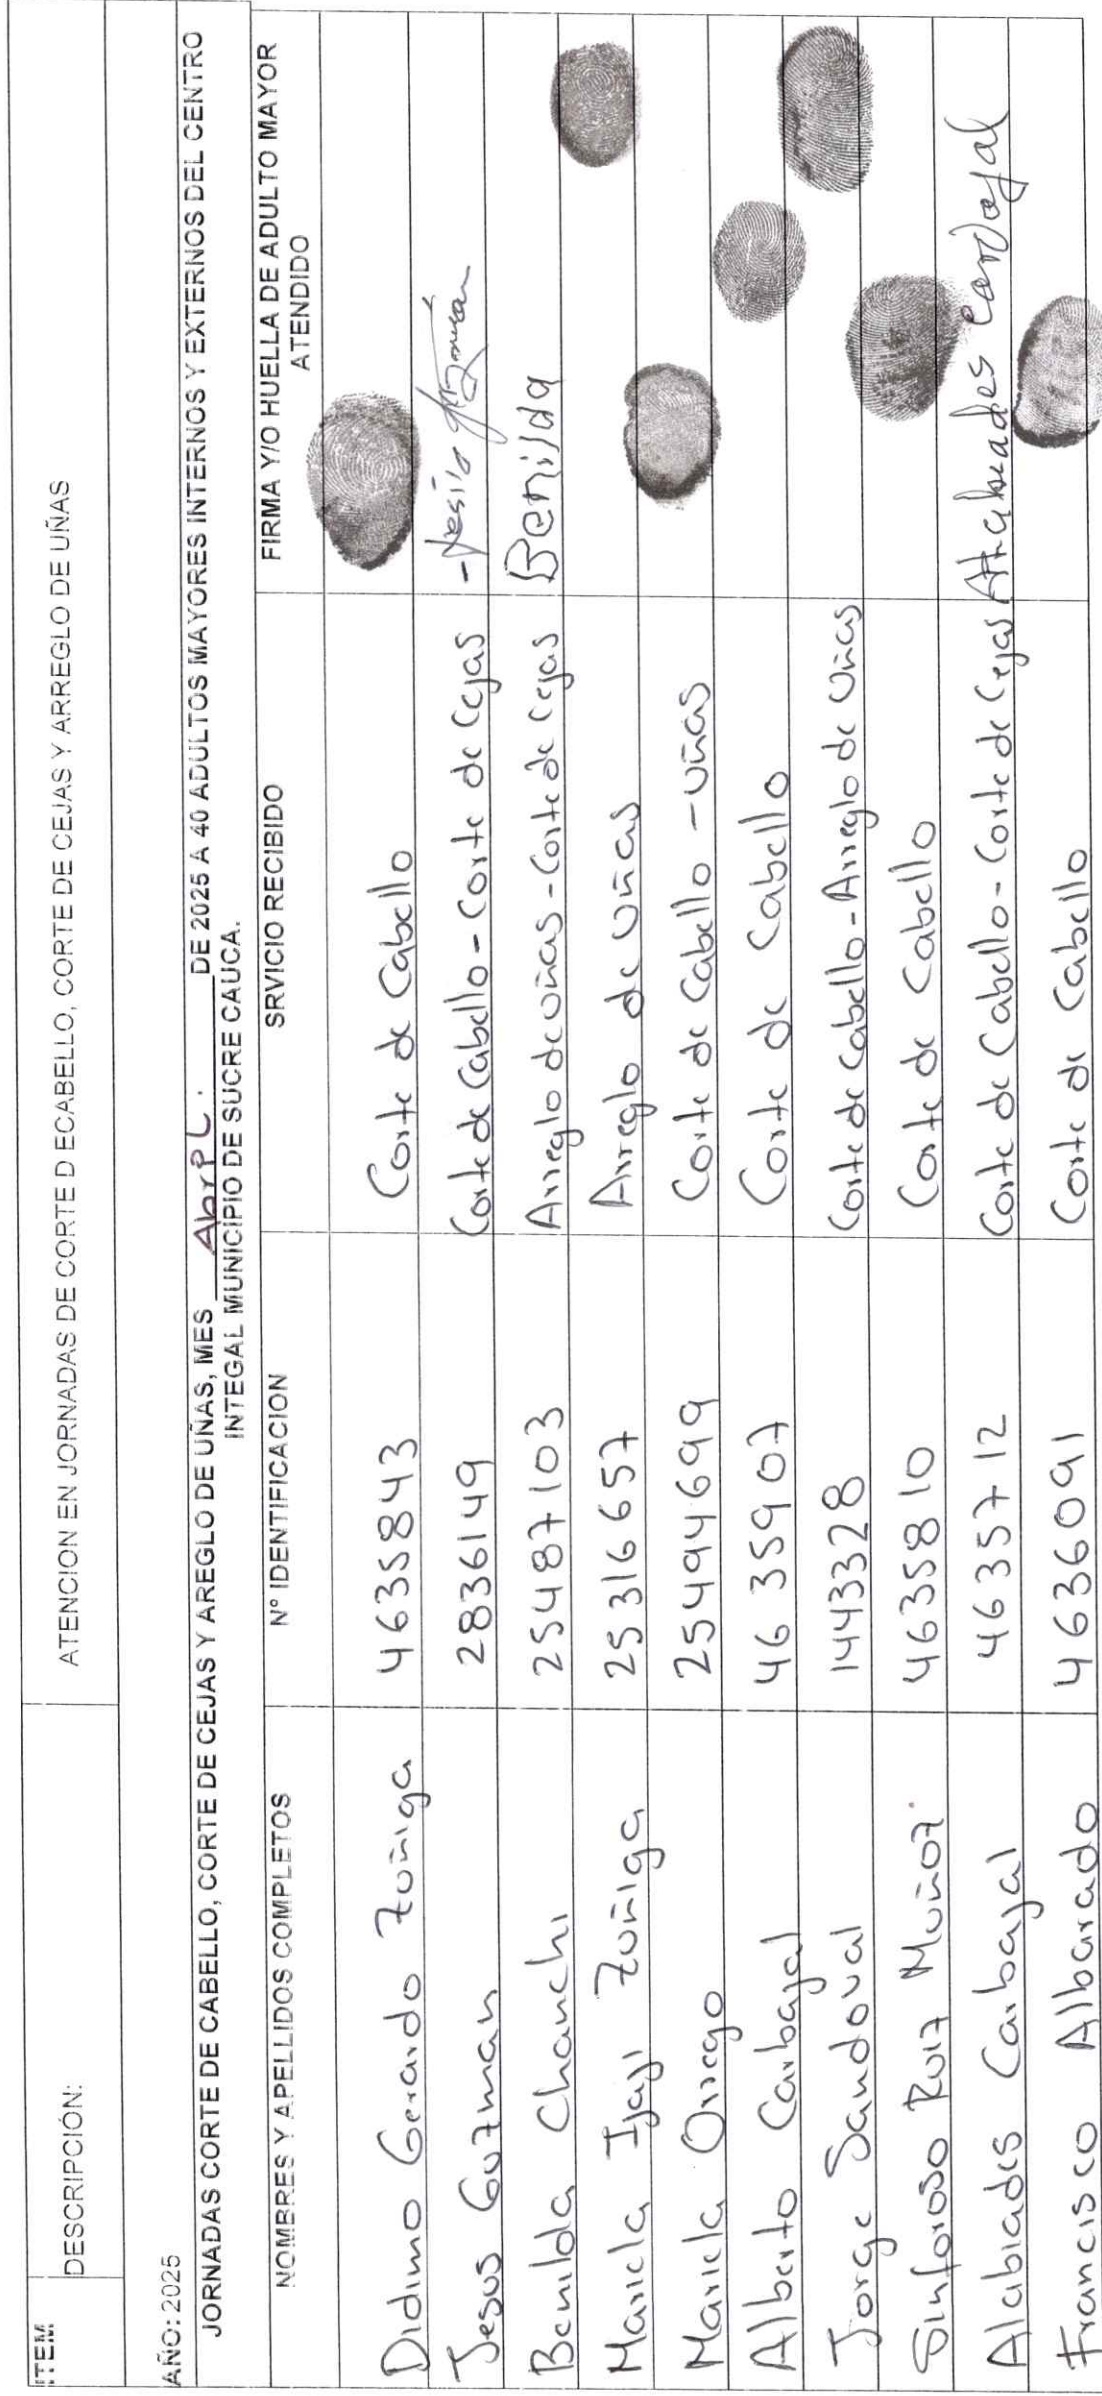 ITEM
DESCRIPCIÓN: ATENCION EN JORNADAS DE CORTE D ECABELLO, CORTE DE CEJAS Y ARREGLO DE UÑAS
AÑO: 2025
JORNADAS CORTE DE CABELLO, CORTE DE CEJAS Y AREGLO DE UÑAS, MES AbrPL. DE 2025 A 40 ADULTOS MAYORES INTERNOS Y EXTERNOS DEL CENTRO
INTEGAL MUNICIPIO DE SUCRE CAUCA.
NOMBRES Y APELLIDOS COMPLETOS N° IDENTIFICACION SRVICIO RECIBIDO FIRMA Y/O HUELLA DE ADULTO MAYOR
ATENDIDO
Didimo Gerardo Zuñiga 4635843 Corte de Cabello
Jesus Guzman 2836149 Corte de Cabello - Corte de Cejas
Benilda Chanchi 25487103 Arreglo de uñas - Corte de Cejas Benilda
Mariela Ijaji Zuñiga 25316657 Arreglo de uñas
Mariela Orrego 25494699 Corte de Cabello - uñas
Alberto Carbajal 46 35907 Corte de Cabello
Jorge Sandoval 1443328 Corte de Cabello - Arreglo de uñas
Sinforoso Ruiz Muñoz. 4635810 Corte de Cabello
Alabiades Carbajal 4635712 Corte de Cabello - Corte de Cejas
Francisco Albarado 4636091 Corte de Cabello